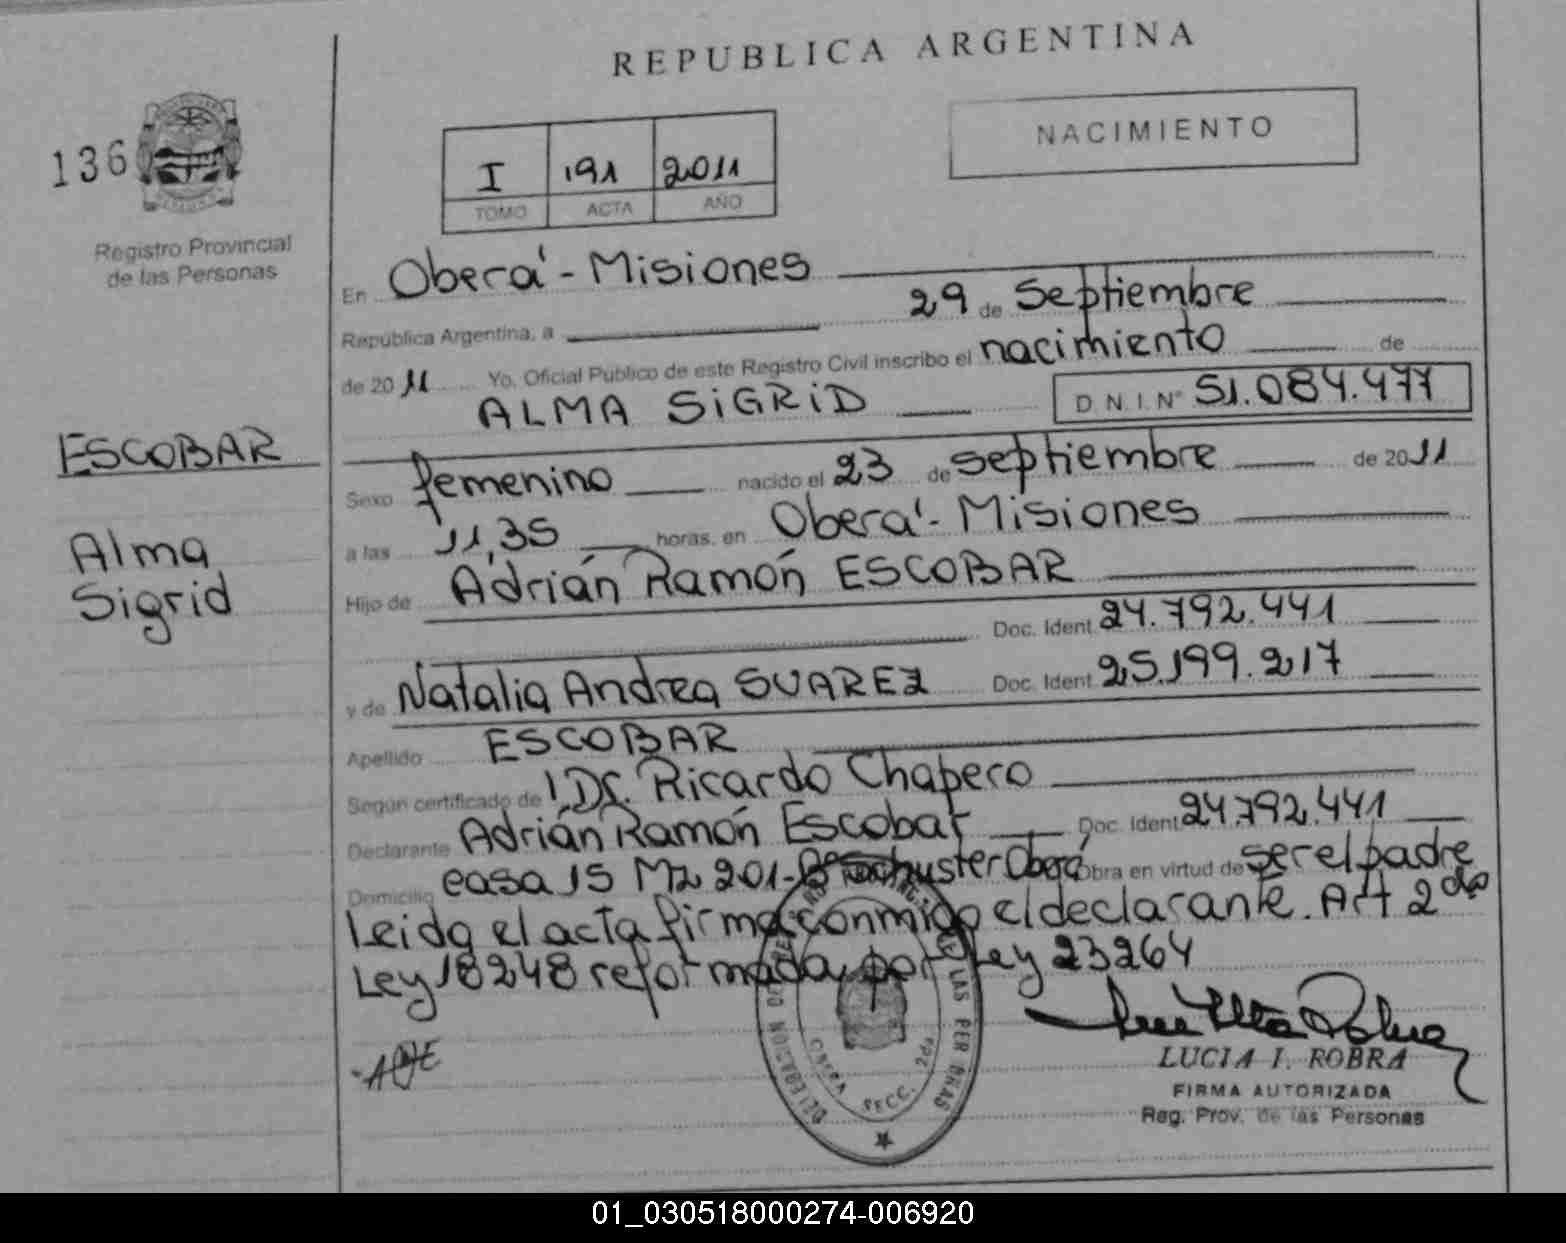 REPUBLICA ARGENTINA
136
NACIMIENTO
I 191 2011
TOMO ACTA AÑO
Registro Provincial
de las Personas
En Oberá - Misiones
República Argentina, a 29 de Septiembre
de 2011 Yo, Oficial Público de este Registro Civil inscribo el nacimiento de
ALMA SiGRiD D.N.I. Nº 51.084.477
ESCOBAR
Alma
Sigrid
Sexo femenino nacido el 23 de septiembre de 2011
a las 11,35 horas, en Oberá - Misiones
Hijo de Adrián Ramón ESCOBAR
Doc. Ident 24.792.441
y de Natalia Andrea SUAREZ Doc. Ident 25.199.217
Apellido ESCOBAR
Según certificado de Dr. Ricardo Chapero
Declarante Adrián Ramón Escobar Doc. Ident 24.792.441
Domicilio casa 15 Mz 201- Schuster Oberá Obra en virtud de ser el padre
Leida el acta firma conmigo el declarante. Art 2do
Ley 18248 reformada por Ley 23264
LUCIA I. ROBRA
FIRMA AUTORIZADA
Reg. Prov. de las Personas
DELEGACION DE LAS PERSONAS
OBERA SECC. 2da
01_030518000274-006920